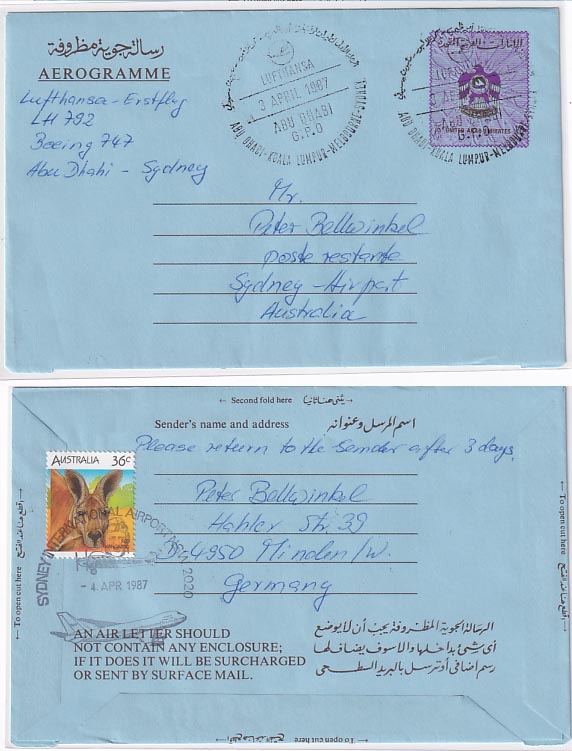 رسالة جوية مظروفة
AEROGRAMME
Lufthansa-Erstflug
LH 792
Boeing 747
Abu Dhabi - Sydney
LUFTHANSA
3 APRIL 1987
ABU DHABI
G.P.O
ABU DHABI-KUALA LUMPUR-MELBOURNE-SYDNEY
الامارات العربية المتحدة
UNITED ARAB EMIRATES
Mr.
Peter Bellwinkel
poste restante
Sydney-Airport
Australia
← Second fold here يثنى هنا ثانيا →
Sender's name and address اسم المرسل وعنوانه
Please return to the sender after 3 days.
AUSTRALIA 36c
Peter Bellwinkel
Hahler Str. 39
D-4950 Minden/W.
Germany
SYDNEY INTERNATIONAL AIRPORT 2020
- 4 APR 1987
AN AIR LETTER SHOULD
NOT CONTAIN ANY ENCLOSURE;
IF IT DOES IT WILL BE SURCHARGED
OR SENT BY SURFACE MAIL.
الرسالة الجوية المظروفة يجب أن لا يوضع
أي شيء بداخلها والا سوف يضاف لها
رسم اضافي أو ترسل بالبريد السطحي
← To open cut here اقطع هنا عند الفتح →
← To open cut here اقطع هنا عند الفتح →
← اقطع هنا عند الفتح To open cut here →